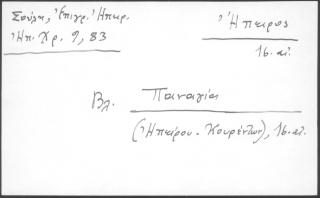 Σούλη, Ἐπιγρ. Ἠπειρ.
Ἠπ. Χρ. 9, 83
Ἤπειρος
16. αἰ.
Βλ. Παναγία
(Ἠπείρου - Κουρέντων), 16. αἰ.